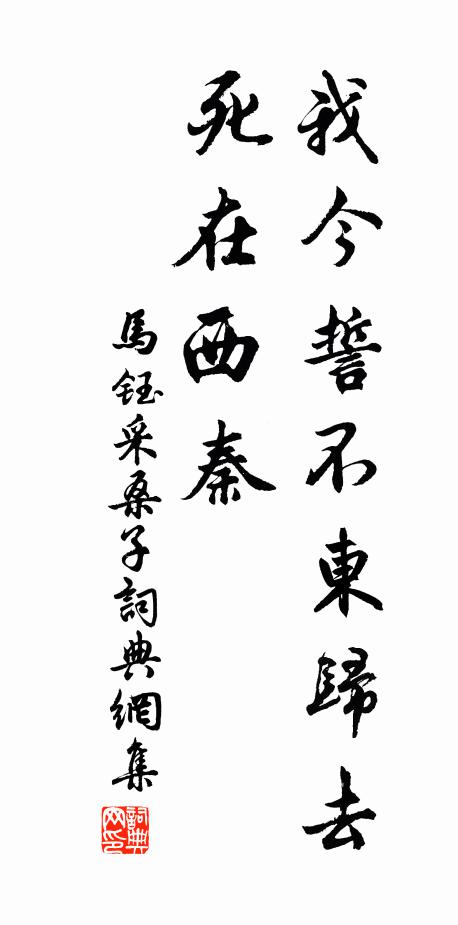 我今誓不東歸去
死在西秦
馬鈺采桑子詞典網集
詞典网印